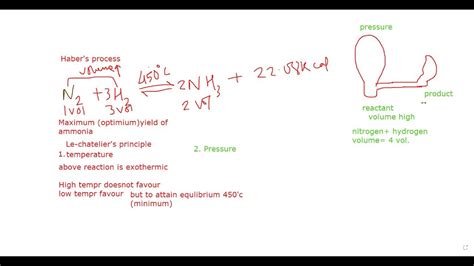 Haber's process
volume
450°C
N2 + 3H2 ⇌ 2NH3 + 22.08kcal
1vol 3vol 2vol
Maximum (optimium)yield of
ammonia
Le-chatelier's principle
1.temperature
above reaction is exothermic
High tempr doesnot favour
low tempr favour but to attain equlibrium 450'c
(minimum)
2. Pressure
pressure
product
reactant
volume high
nitrogen+ hydrogen
volume= 4 vol.